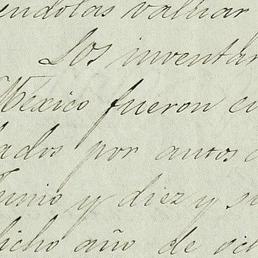 endolas valuar
Los inventar
México fueron cu
lados por autos d
Junio y diez y si
dicho año de och